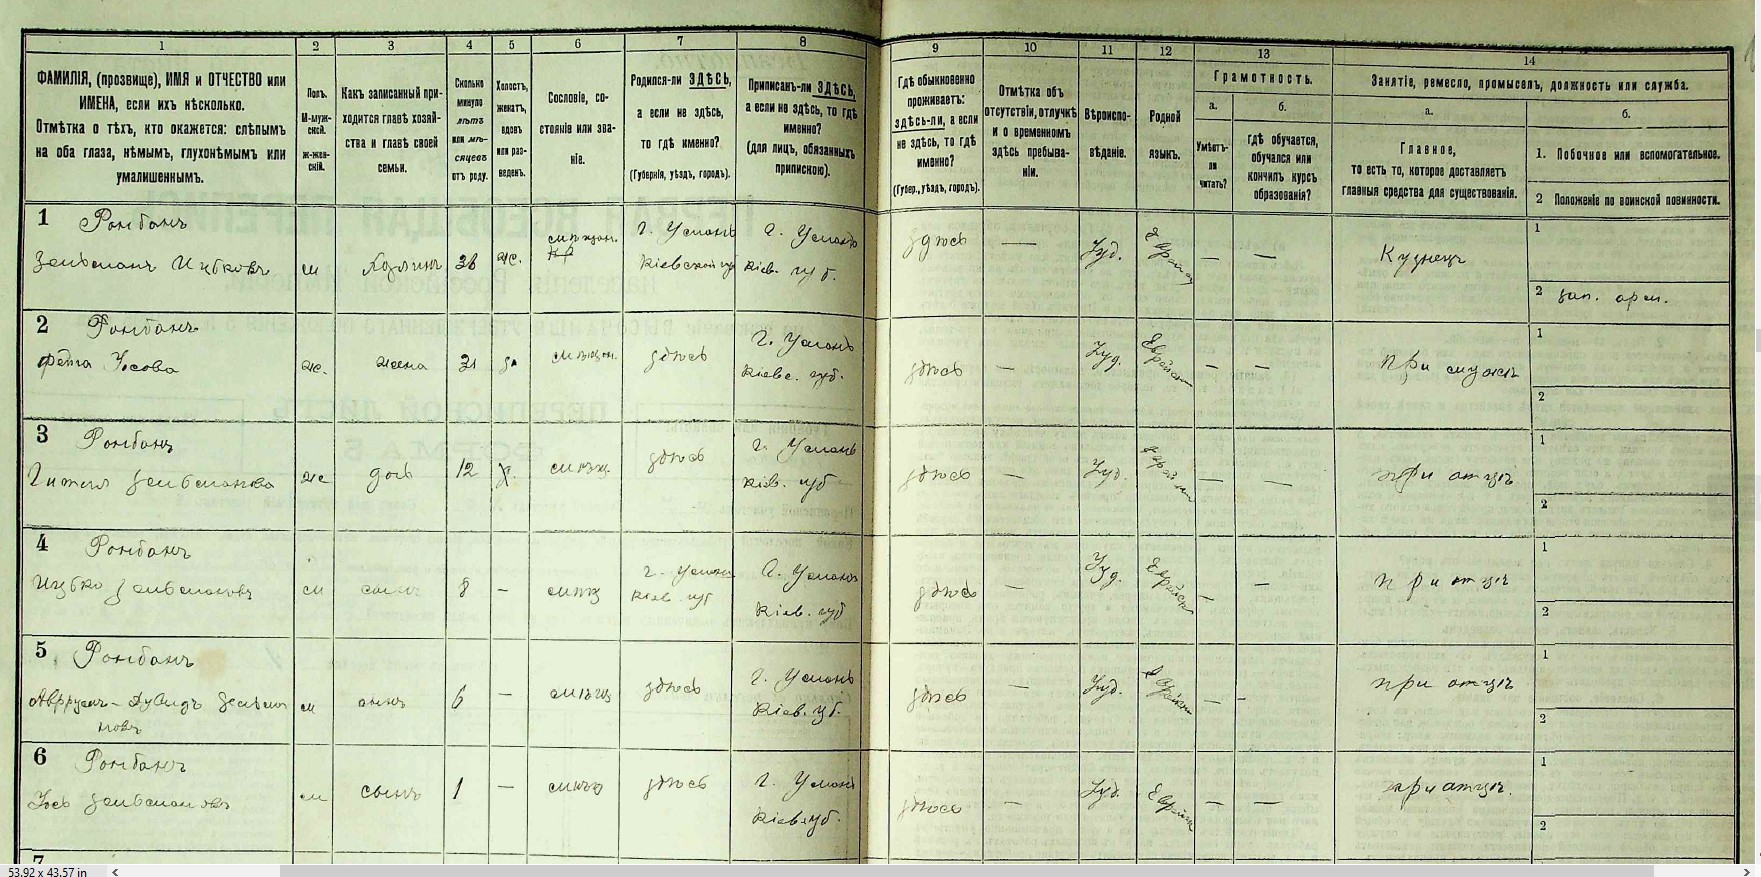 1
2
3
4
5
6
7
8
9
10
11
12
13
14
ФАМИЛІЯ, (прозвище), ИМЯ и ОТЧЕСТВО или
ИМЕНА, если ихъ нѣсколько.
Отмѣтка о тѣхъ, кто окажется: слѣпымъ
на оба глаза, нѣмымъ, глухонѣмымъ или
умалишеннымъ.
Полъ.
М-муж-
ской.
ж-жен-
скій.
Какъ записанный при-
ходится главѣ хозяй-
ства и главѣ своей
семьи.
Сколько
минуло
лѣтъ
или мѣ-
сяцевъ
отъ роду.
Холостъ,
женатъ,
вдовъ
или раз-
веденъ.
Сословіе, со-
стояніе или зва-
ніе.
Родился-ли ЗДѢСЬ,
а если не здѣсь,
то гдѣ именно?
(Губернія, уѣздъ, городъ).
Приписанъ-ли ЗДѢСЬ,
а если не здѣсь, то гдѣ
именно?
(для лицъ, обязанныхъ
припискою).
Гдѣ обыкновенно
проживаетъ:
здѣсь-ли, а если
не здѣсь, то гдѣ
именно?
(Губер., уѣздъ, городъ).
Отмѣтка объ
отсутствіи, отлучкѣ
и о временномъ
здѣсь пребыва-
ніи.
Вѣроиспо-
вѣданіе.
Родной
языкъ.
Грамотность.
а.
б.
Умѣетъ-
ли
читать?
гдѣ обучается,
обучался или
кончилъ курсъ
образованія?
Занятіе, ремесло, промыселъ, должность или служба.
а.
б.
Главное,
то есть то, которое доставляетъ
главныя средства для существованія.
1. Побочное или вспомогательное.
2 Положеніе по воинской повинности.
1 Ронбанъ
Зельманъ Ицковъ м Хозяинъ ж. г. Умань Кіевской губ г. Умань Кіев. губ. здѣсь — Іуд. — — Кузнецъ
1
2 зап. арм.
2 Ронбанъ
Іосова ж. жена 31 мѣщан. здѣсь г. Умань Кіевс. губ. здѣсь — Іуд. Еврейск — — при мужѣ
1
2
3 Ронбанъ
Зельманова ж дочь 12 х. мѣщ. здѣсь г. Умань Кіев. губ здѣсь — Іуд. — — при отцѣ
1
2
4 Ронбанъ
Ицко Зельмановъ м сынъ 8 — мѣщ г. Умань Кіев. губ г. Умань Кіев. губ здѣсь — Іуд. Еврейск — — при отцѣ
1
2
5 Ронбанъ
м сынъ 6 — мѣщ здѣсь г. Умань Кіев. губ. здѣсь — Іуд. — — при отцѣ
1
2
6 Ронбанъ
Іось Зельмановъ м сынъ 1 — мѣщ здѣсь г. Умань Кіев. губ. здѣсь — Іуд. — — при отцѣ.
1
2
7
53.92 x 43.57 in